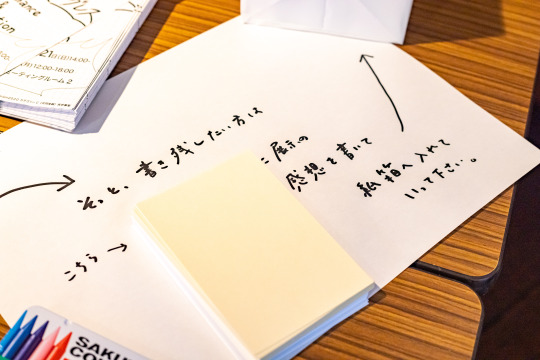 21日(日)14:00-
(月)12:00-18:00
ーティングルーム2
そっと、書き残したい方は
こちら→
に展示の
感想を書いて
紙箱へ入れて
いって下さい。
SAKU
CO